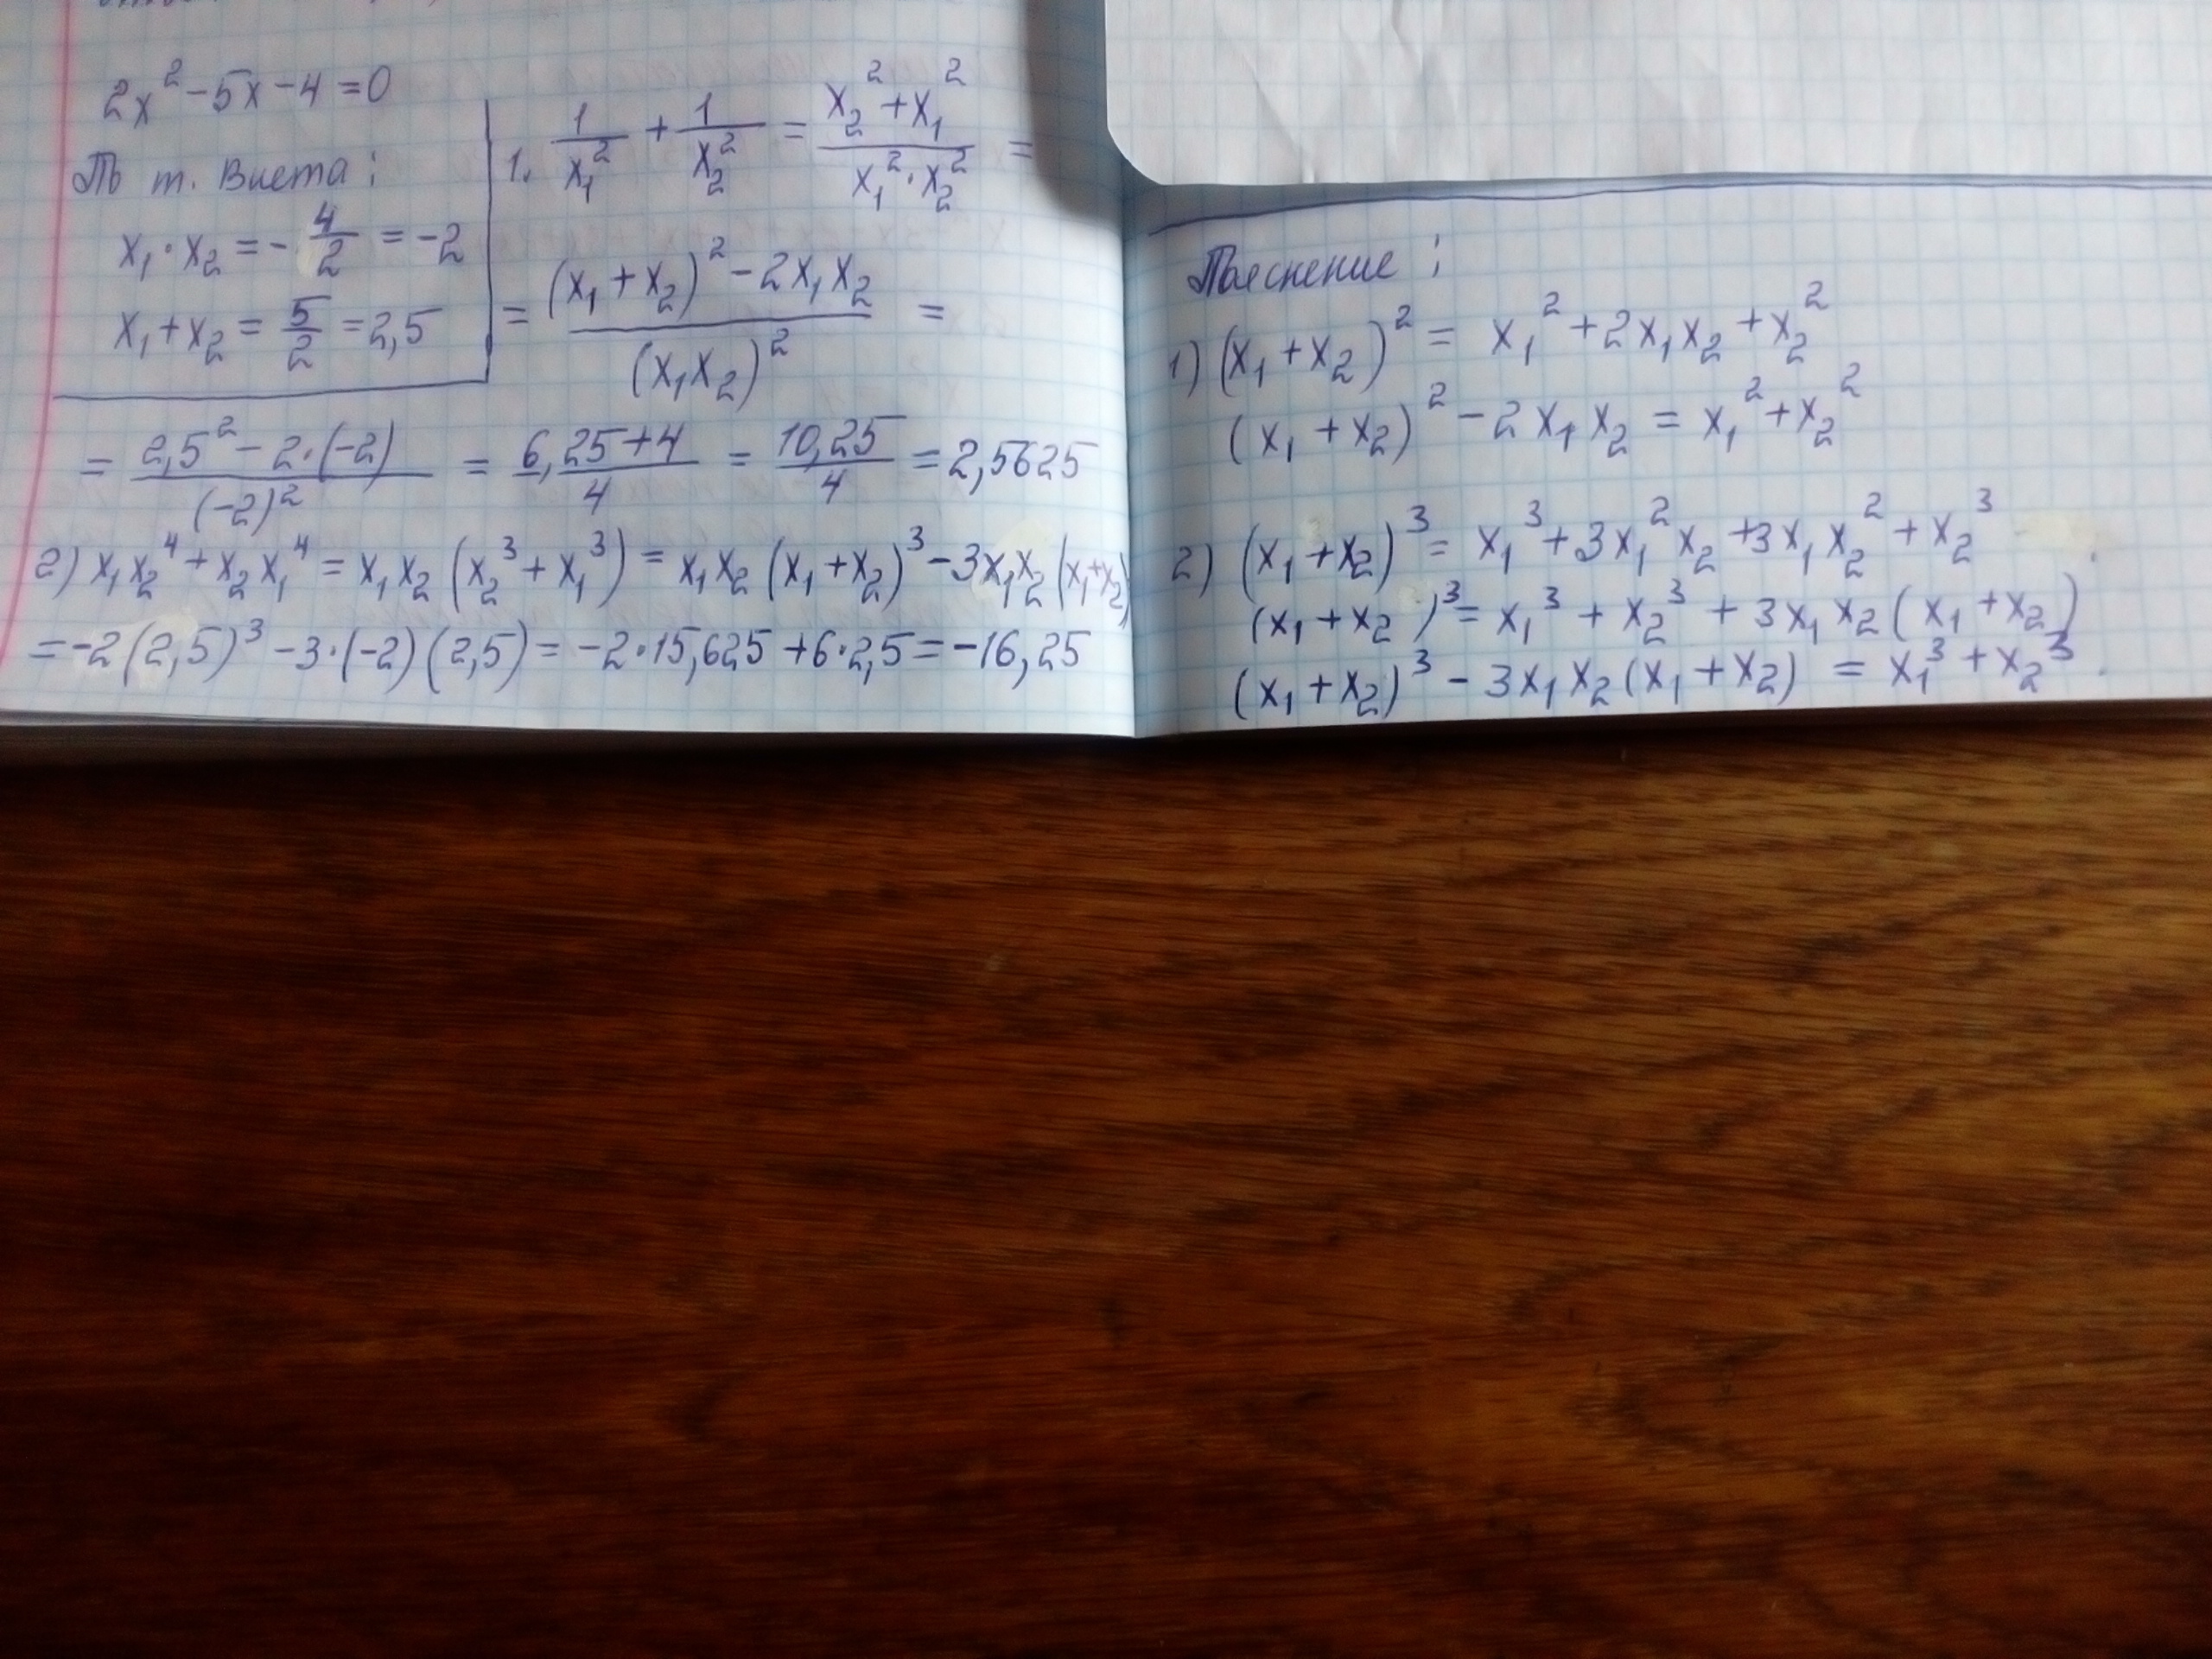 2x² - 5x - 4 = 0
По т. Виета:
x₁ · x₂ = - 4/2 = -2
x₁ + x₂ = 5/2 = 2,5
1. 1/x₁² + 1/x₂² = (x₂² + x₁²)/(x₁² · x₂²) =
= ((x₁ + x₂)² - 2x₁x₂)/(x₁x₂)² =
= (2,5² - 2·(-2))/(-2)² = (6,25+4)/4 = 10,25/4 = 2,5625
2) x₁x₂⁴ + x₂x₁⁴ = x₁x₂(x₂³ + x₁³) = x₁x₂(x₁+x₂)³ - 3x₁x₂(x₁+x₂)
= -2(2,5)³ - 3·(-2)(2,5) = -2·15,625 + 6·2,5 = -16,25
Пояснение:
1) (x₁ + x₂)² = x₁² + 2x₁x₂ + x₂²
(x₁ + x₂)² - 2x₁x₂ = x₁² + x₂²
2) (x₁ + x₂)³ = x₁³ + 3x₁²x₂ + 3x₁x₂² + x₂³
(x₁ + x₂)³ = x₁³ + x₂³ + 3x₁x₂(x₁ + x₂)
(x₁ + x₂)³ - 3x₁x₂(x₁ + x₂) = x₁³ + x₂³.